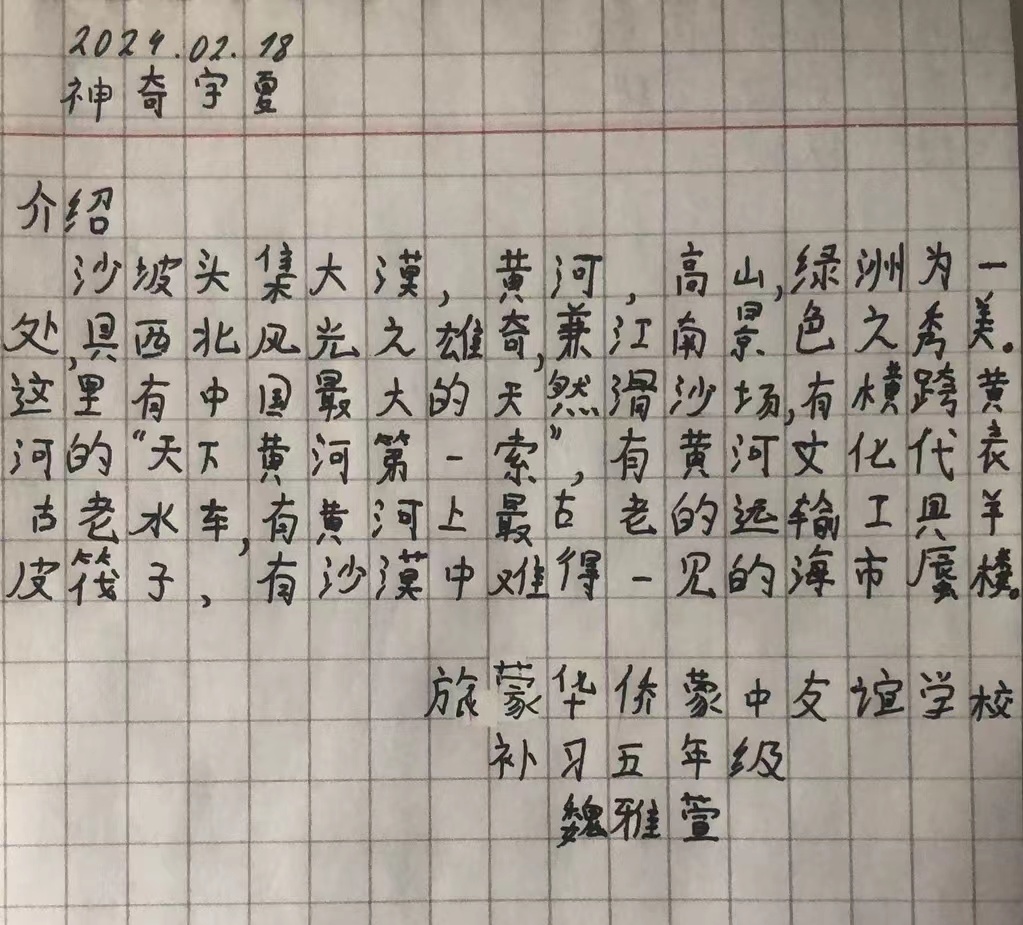 2024.02.18
神奇宁夏
介绍
沙坡头集大漠,黄河,高山,绿洲为一
处,具西北风光之雄奇,兼江南景色之秀美。
这里有中国最大的天然滑沙场,有横跨黄
河的“天下黄河第一索”,有黄河文化代表
古老水车,有黄河上最古老的运输工具羊
皮筏子,有沙漠中难得一见的海市蜃楼。
旅蒙华侨蒙中友谊学校
补习五年级
魏雅萱